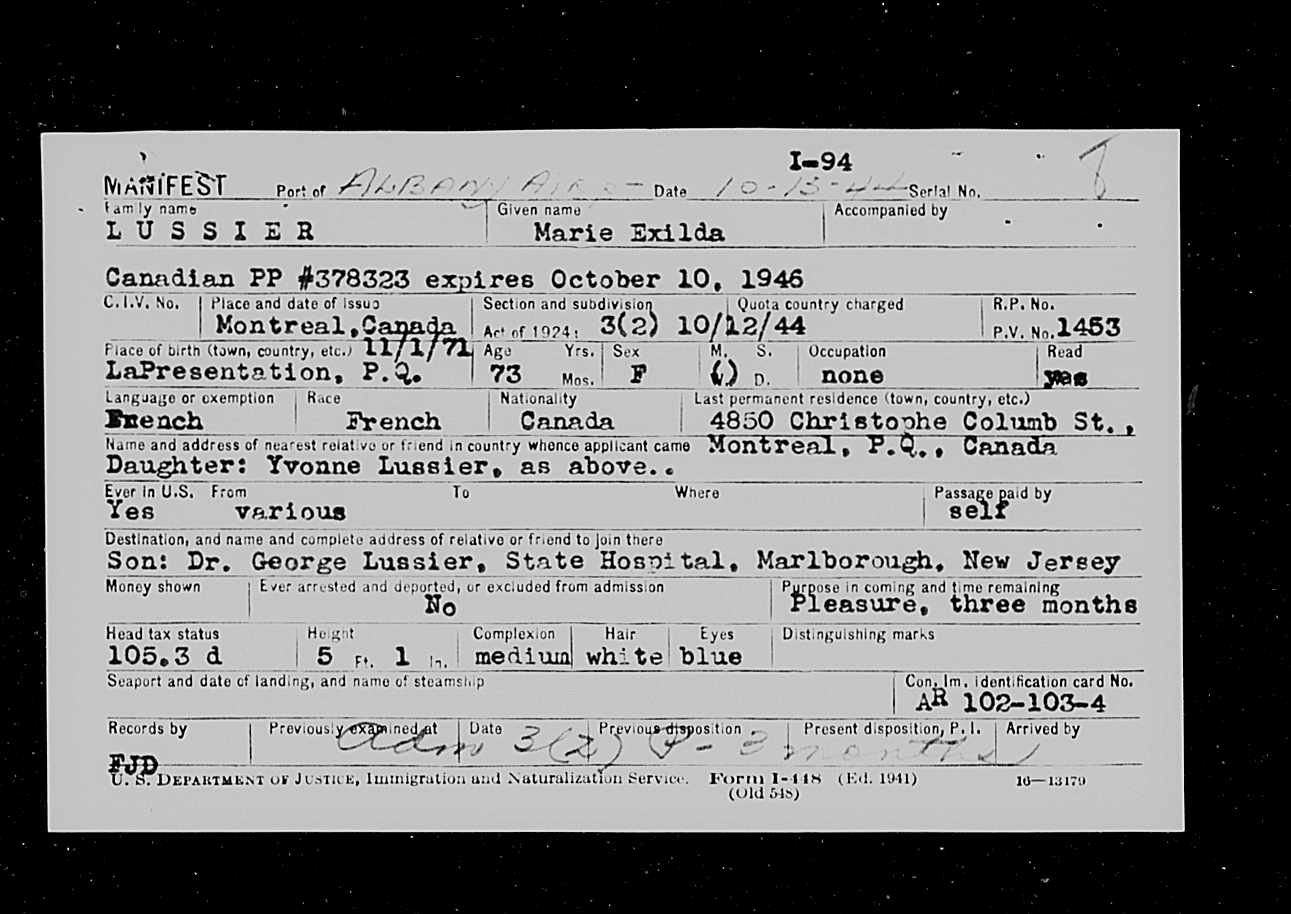 I-94
MANIFEST Port of ALBANY Date 10-13-44 Serial No.
Family name Given name Accompanied by
LUSSIER Marie Exilda
Canadian PP #378323 expires October 10, 1946
C.I.V. No. Place and date of issue Section and subdivision Quota country charged R.P. No.
Montreal, Canada Act of 1924: 3(2) 10/12/44 P.V. No. 1453
Place of birth (town, country, etc.) 11/1/71 Age Yrs. Sex M. S. Occupation Read
LaPresentation, P.Q. 73 Mos. F D. none yes
Language or exemption Race Nationality Last permanent residence (town, country, etc.)
French French Canada 4850 Christophe Columb St.,
Name and address of nearest relative or friend in country whence applicant came Montreal, P.Q., Canada
Daughter: Yvonne Lussier, as above..
Ever in U.S. From To Where Passage paid by
Yes various self
Destination, and name and complete address of relative or friend to join there
Son: Dr. George Lussier, State Hospital, Marlborough, New Jersey
Money shown Ever arrested and deported, or excluded from admission Purpose in coming and time remaining
No Pleasure, three months
Head tax status Height Complexion Hair Eyes Distinguishing marks
105.3 d 5 Ft. 1 In. medium white blue
Seaport and date of landing, and name of steamship Con. Im. identification card No.
AR 102-103-4
Records by Previously examined at Date Previous disposition Present disposition, P. I. Arrived by
Adm 3(2) P - 3 months
FJD
U. S. DEPARTMENT OF JUSTICE, Immigration and Naturalization Service. Form I-448 (Ed. 1941) 16—13179
(Old 548)